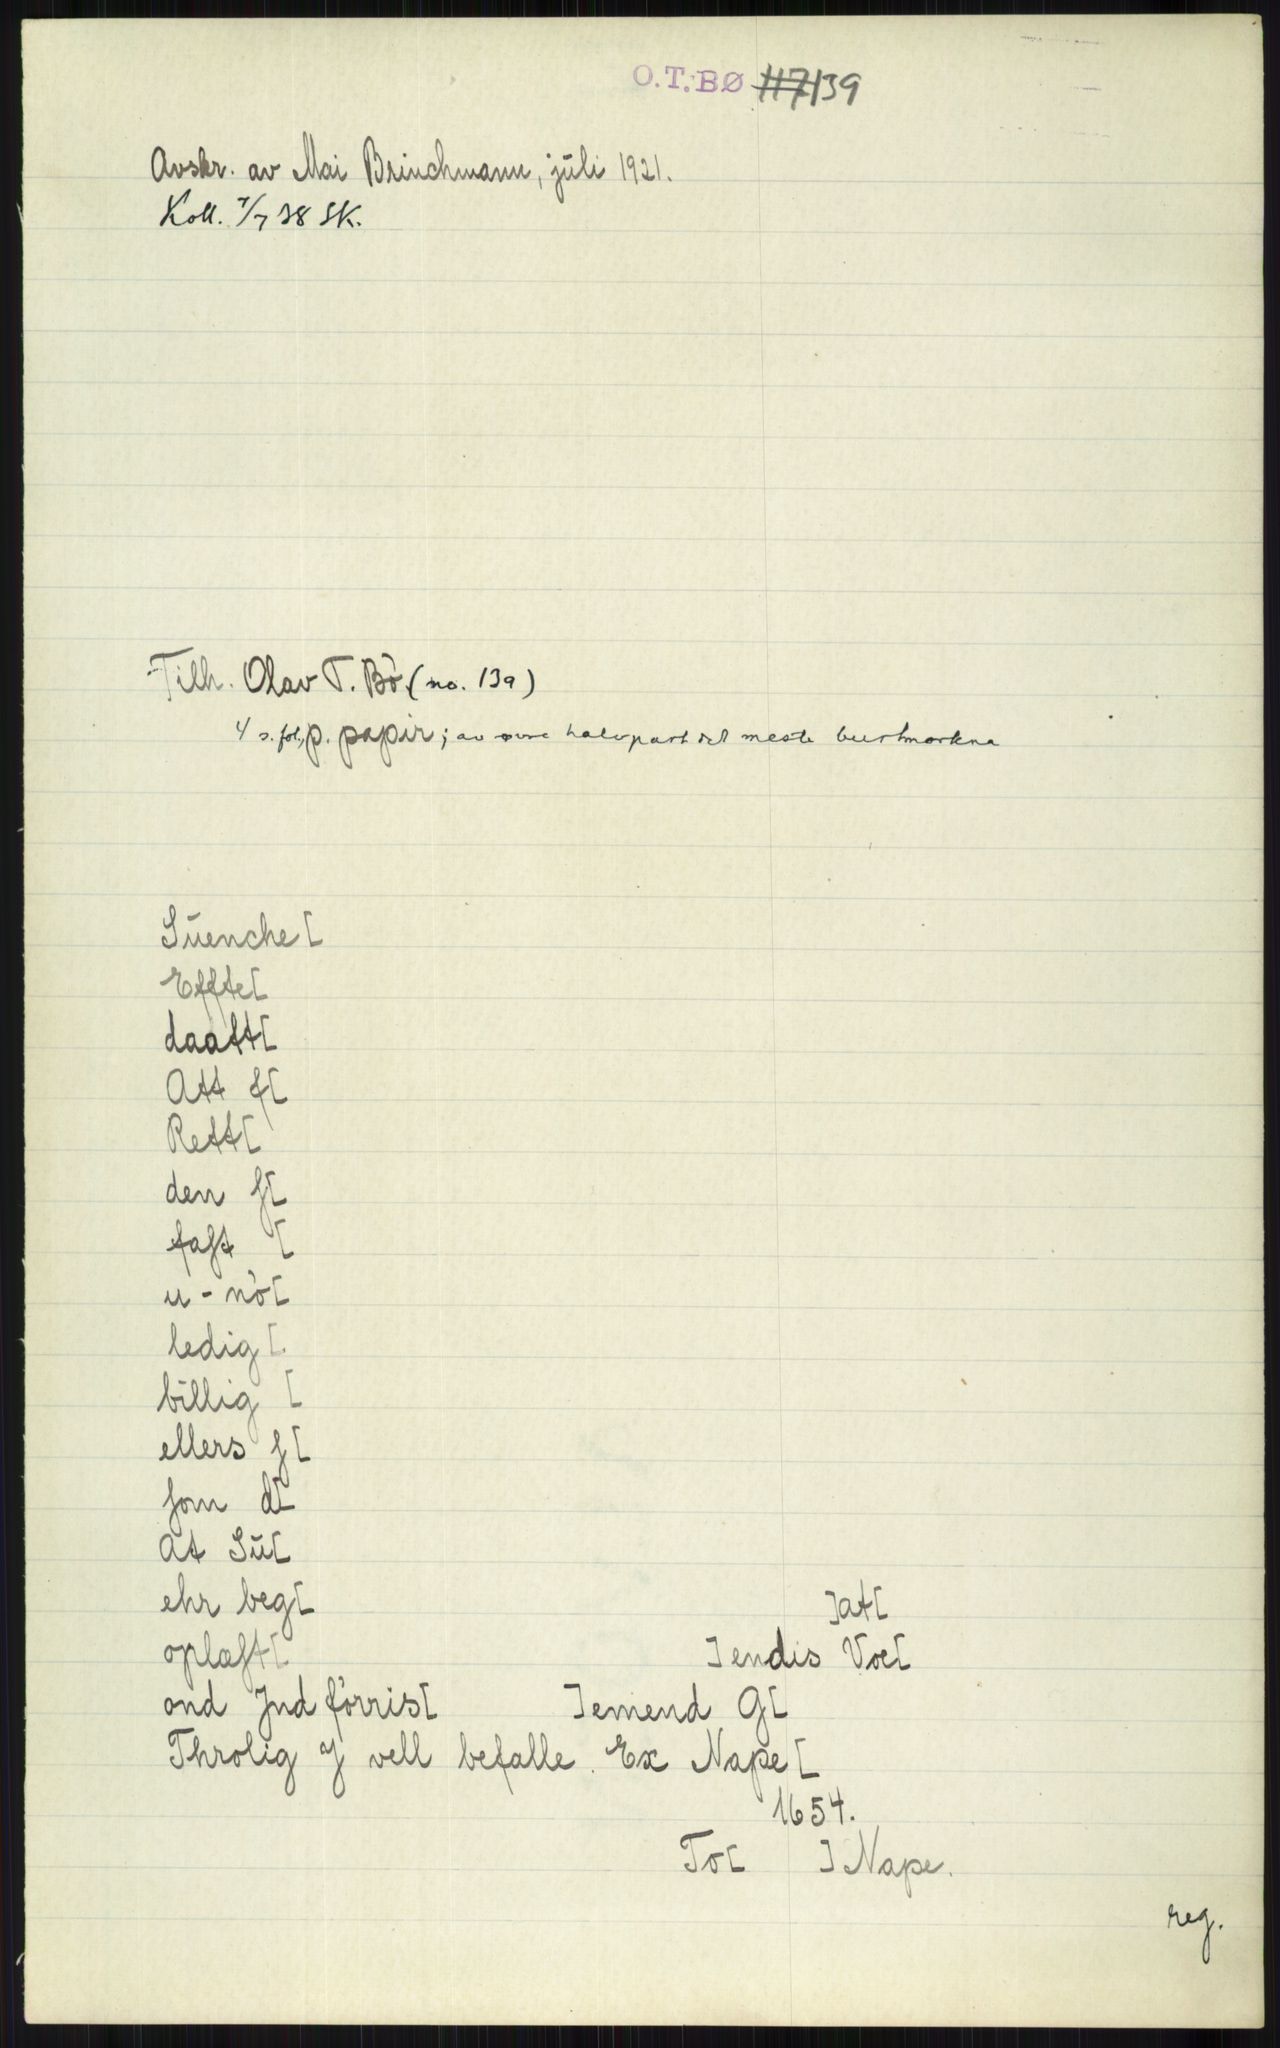 O.T.BØ 117139
Avskr. av Mai Brinchmann, júli 1921.
Koll. 7/7 38 SK.
Tilh. Olav T. Bö (no. 139)
4 s. fol., p. papir; av øvre halvpart det meste burtmorkna
Süenche[
Effte[
daatt[
Att f[
Rett[
den ſ[
faſt [
u - nö[
ledig [
billig [
ellers ſ[
ſom d[
At Sü[
ehr beg[ ]at[
oplaſt[ ]endis Voe[
ond Jnd förris[ ]emend G[
Throlig J vell befalle. Ex Nape[
1654.
To[ ]Nape.
reg.